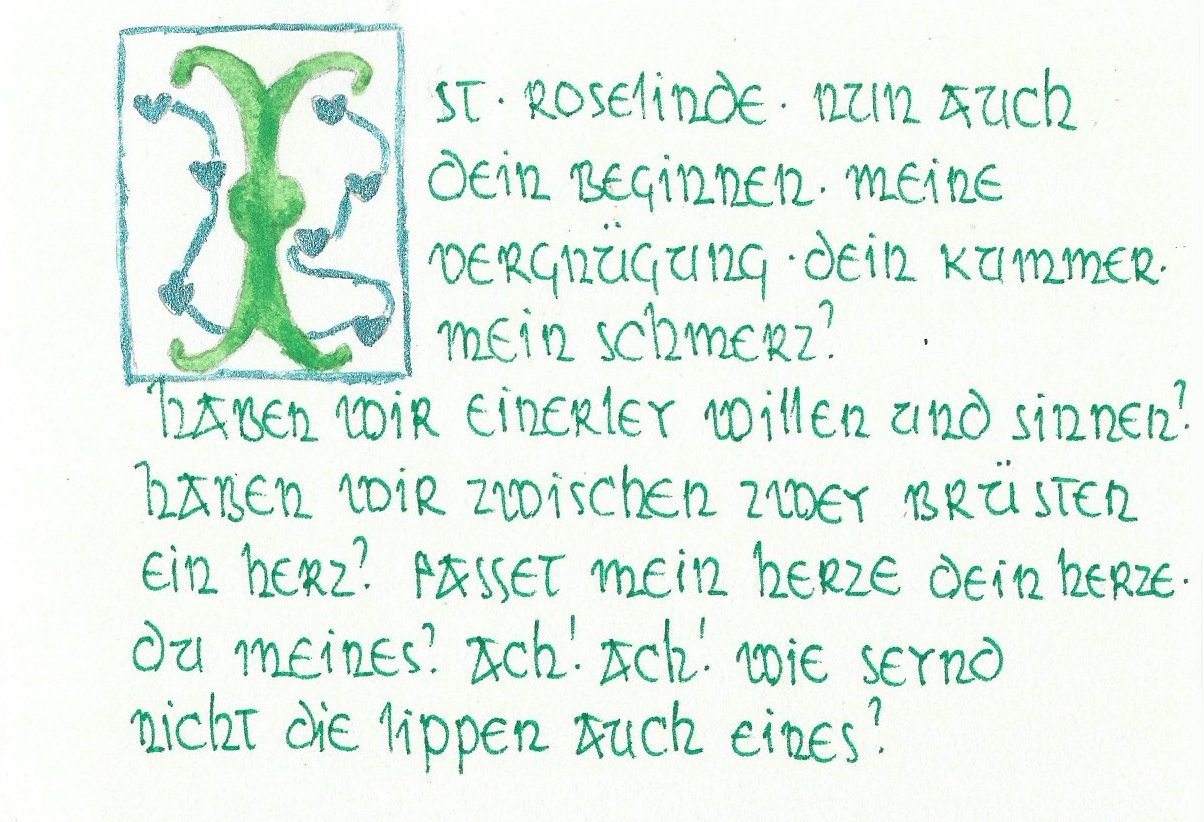 IST · ROSELINDE · NUN AUCH
DEIN BEGINNEN · MEINE
VERGNÜGUNG · DEIN KUMMER ·
MEIN SCHMERZ?
HABEN WIR EINERLEY WILLEN UND SINNEN?
HABEN WIR ZWISCHEN ZWEY BRÜSTEN
EIN HERZ? PASSET MEIN HERZE DEIN HERZE ·
DU MEINES? ACH! ACH! WIE SEYND
NICHT DIE LIPPEN AUCH EINES?